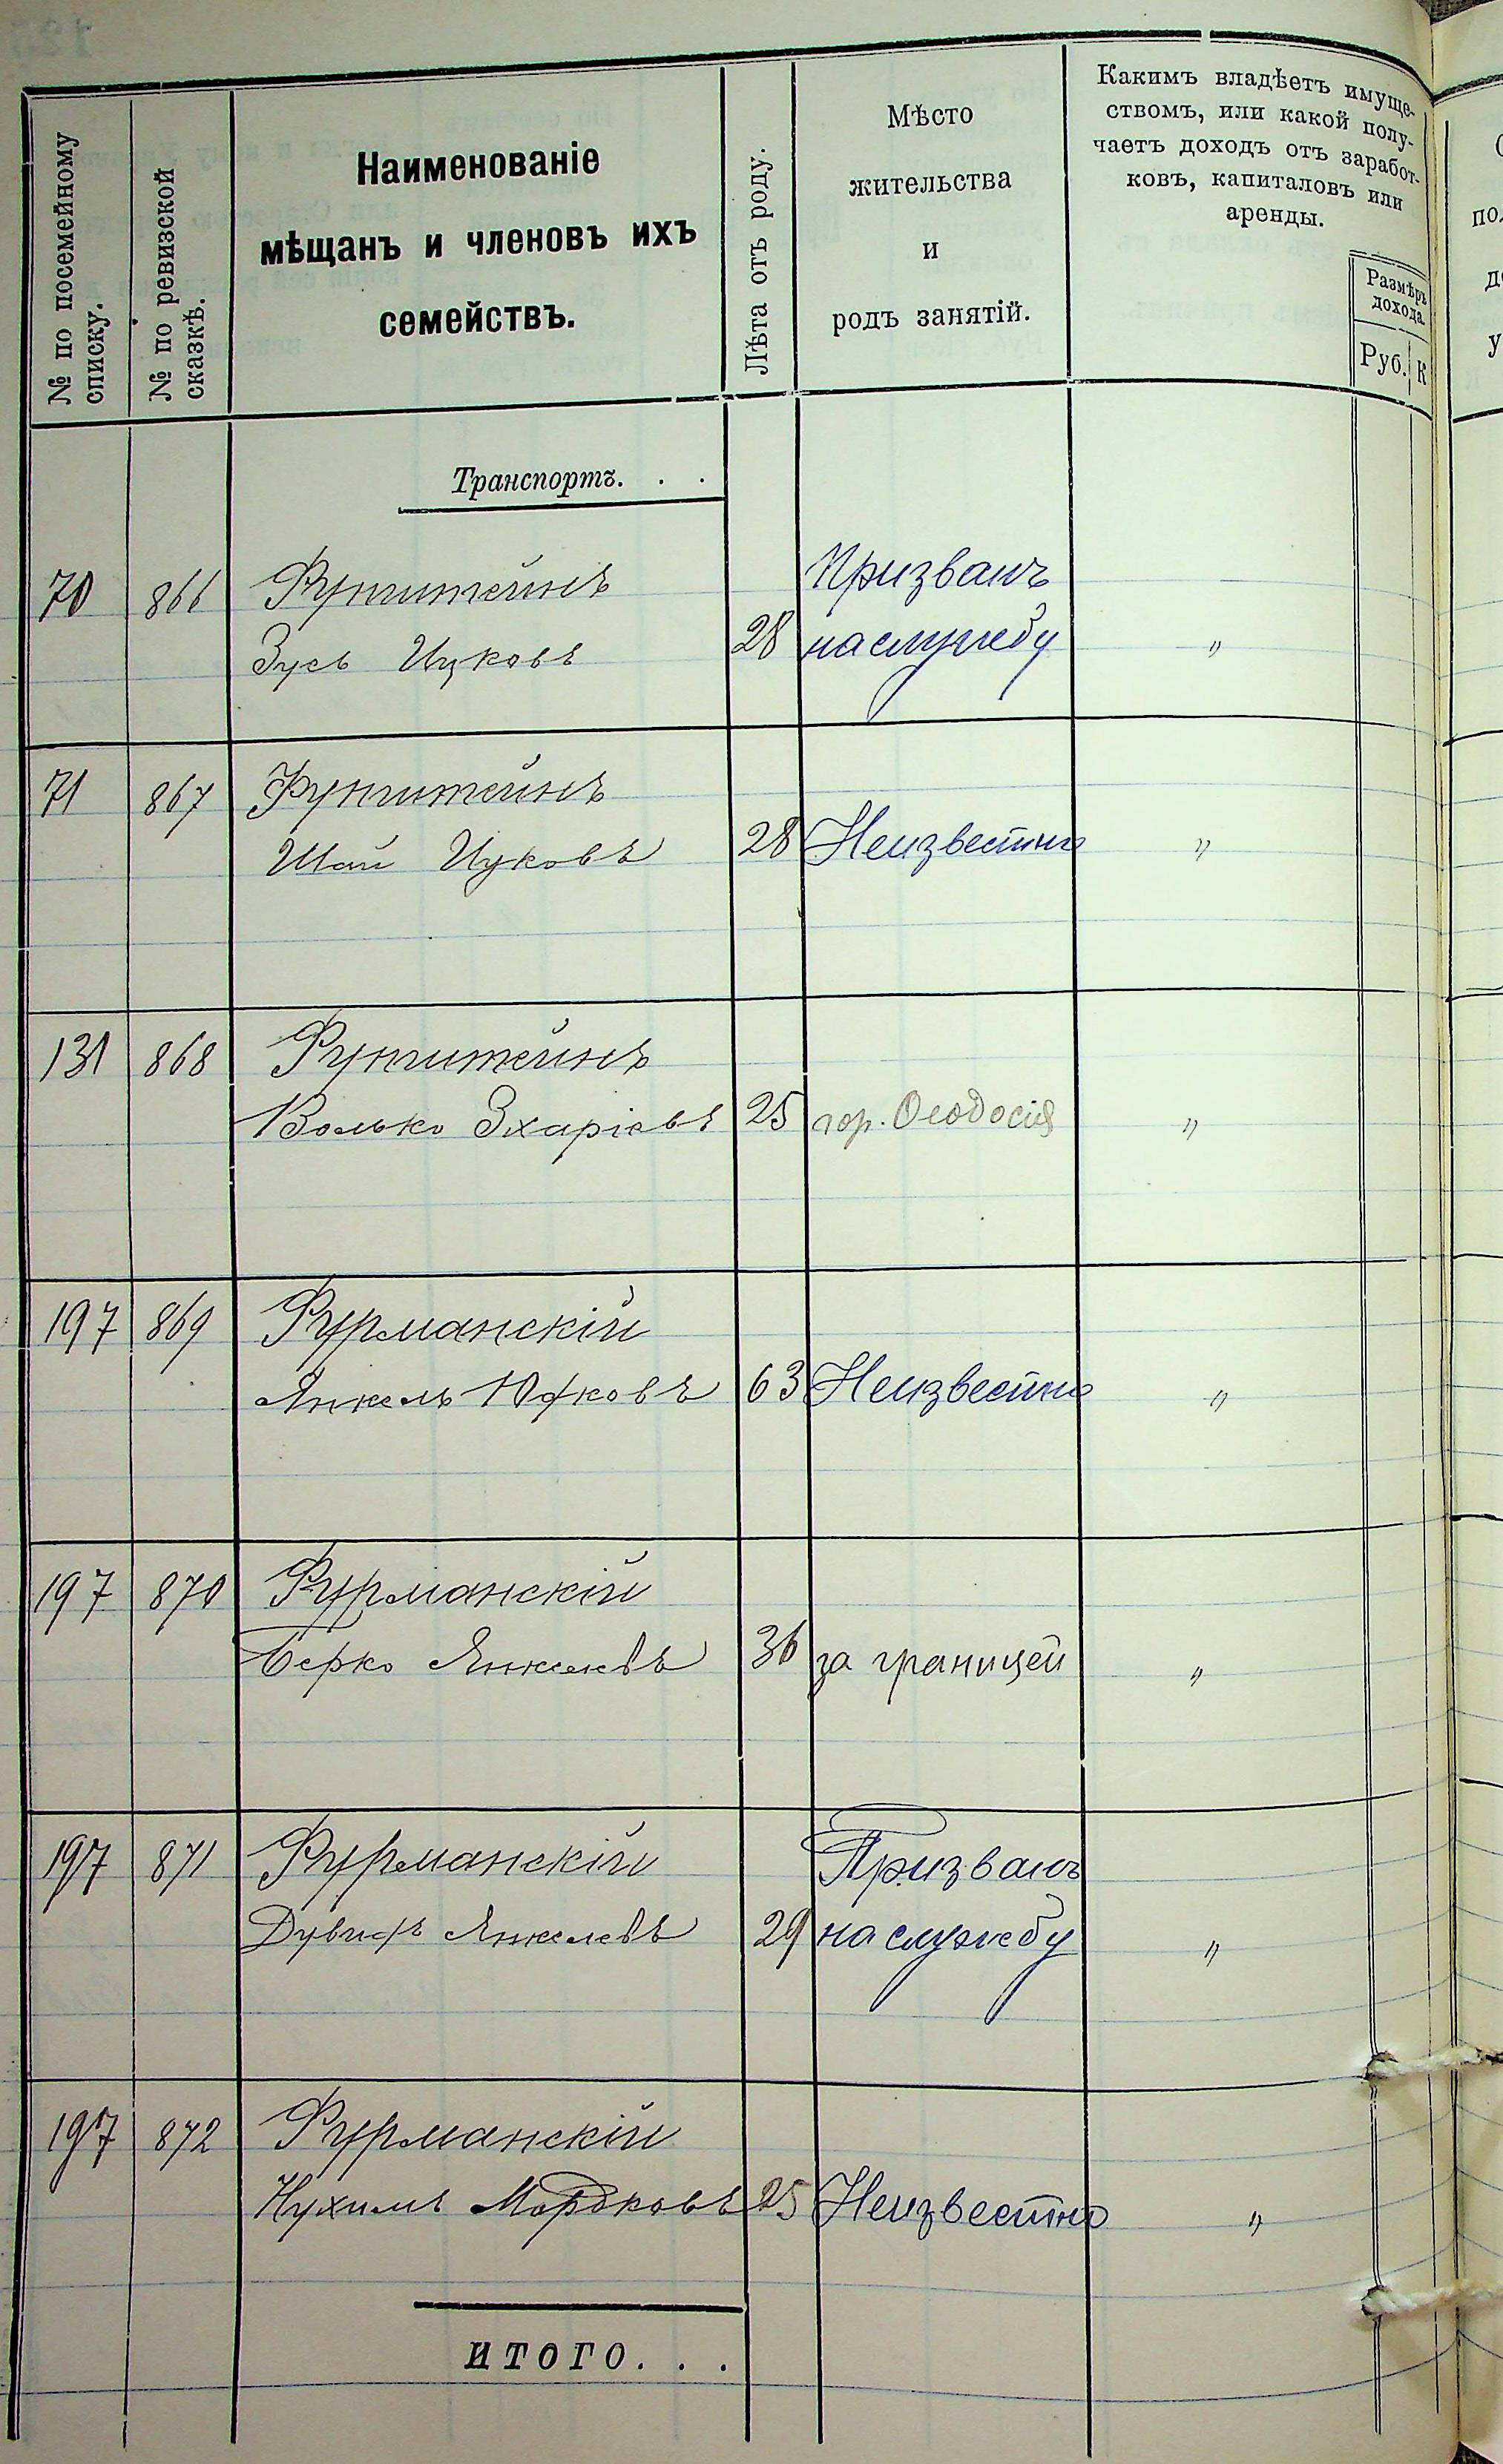 № по посемейному
списку.
№ по ревизской
сказкѣ.
Наименованіе
мѣщанъ и членовъ ихъ
семействъ.
Лѣта отъ роду.
Мѣсто
жительства
и
родъ занятій.
Какимъ владѣетъ имуще-
ствомъ, или какой полу-
чаетъ доходъ отъ заработ-
ковъ, капиталовъ или
аренды.
Размѣръ
дохода.
Руб. К
Транспортъ. . .
70 866 Фунштейнъ Призванъ
Зусь Ицковъ 28 на службу "
71 867 Фунштейнъ
Шая Ицковъ 28 Неизвестно "
131 868 Фунштейнъ
Волько Зхаріевъ 25 гор. Ѳеодосія "
197 869 Фурманскій
Янкель Юфковъ 63 Неизвестно "
197 870 Фурманскій
Берко Янкелевъ 36 за границей "
197 871 Фурманскій Призванъ
Дувидъ Янкелевъ 29 на службу "
197 872 Фурманскій
Нухимъ Мордковъ 25 Неизвестно "
ИТОГО. . .